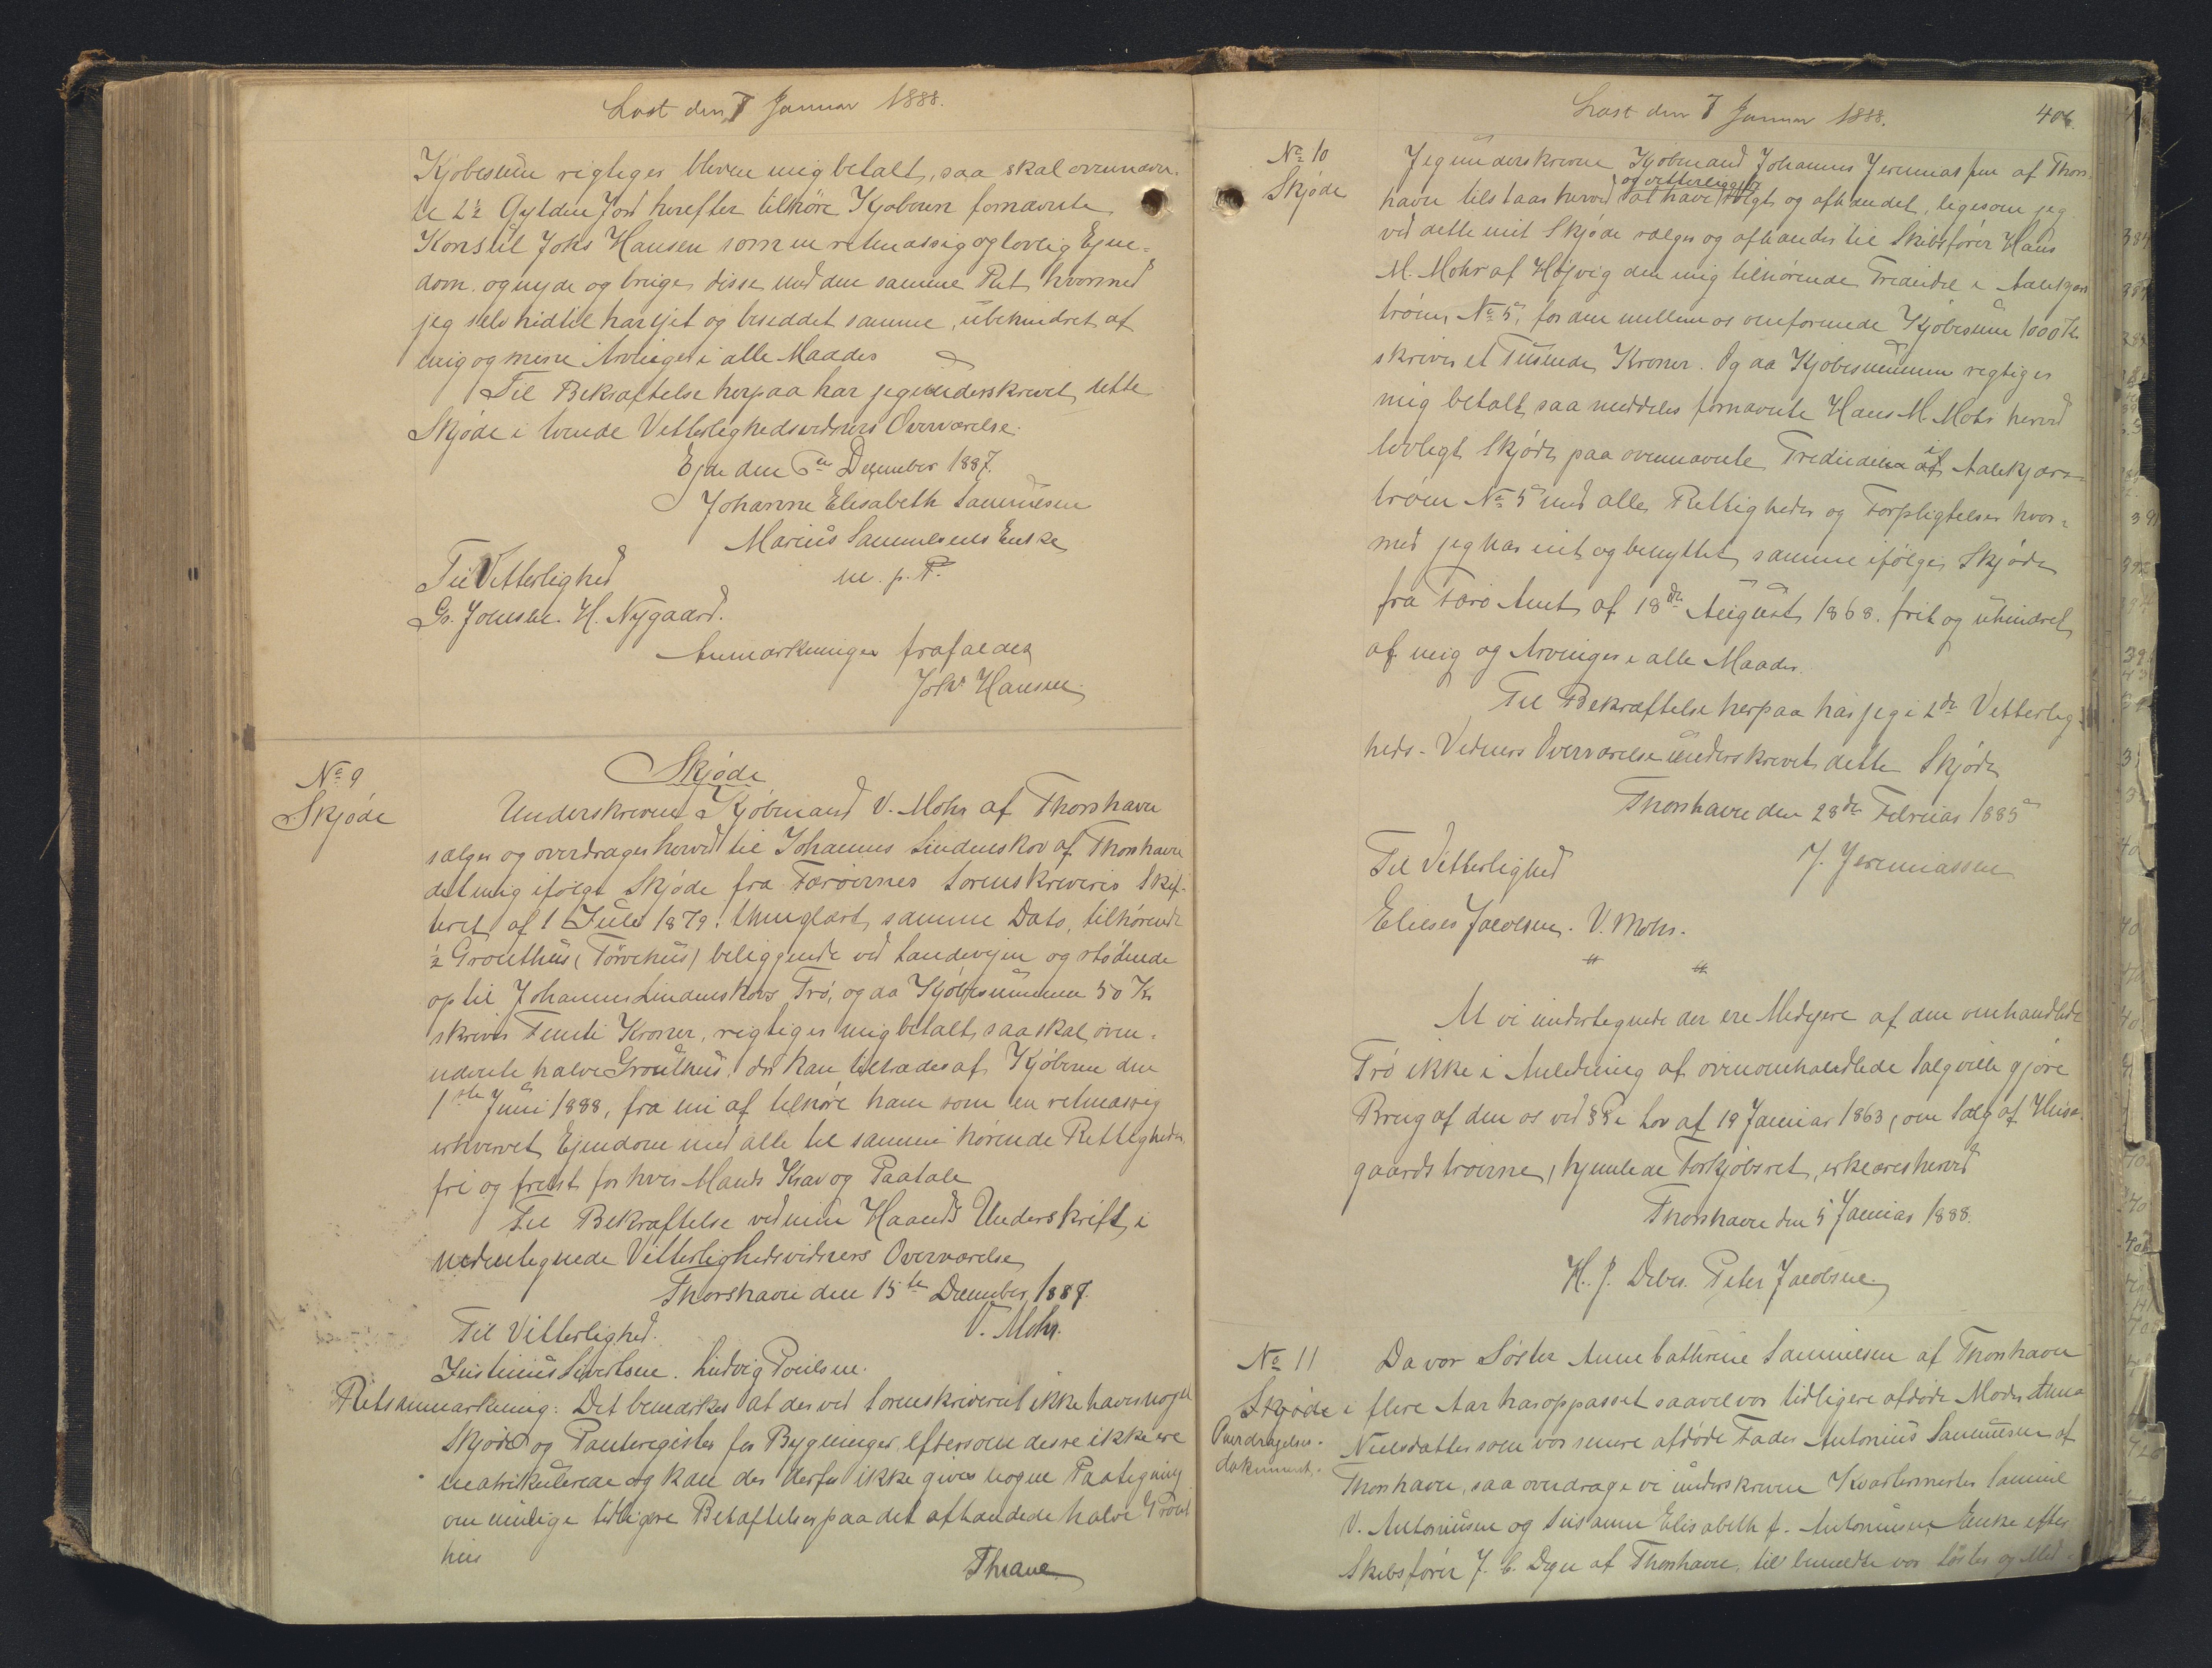 Læst den 7 Januar 1888.
Kjøbesum rigtiges bleven mig betalt, saa skal ovennævn-
te 2½ Gylden Jord herefter tilhøre Kjøberen fornævnte
Konsul Johs Hansen som en retmæssig og lovlig Ejen-
dom, og nyde og bruge disse med den samme Ret hvormed
jeg selv hidtil har ejet og besiddet samme, ubehindret af
mig og mine Arvinger i alle Maader
Til Bekræftelse herpaa har jeg underskrevet dette
Skjøde i tvende Vitterlighedsvidners Overværelse.
Ejde den 6te December 1887.
Johanne Elisabeth Samuelsen
Marius Samuelsens Enke
m. p. P.
Til Vitterlighed
Gr. Joensen. H. Nygaard.
Anmærkninger frafaldes
Johs Hansen.
No 9
Skjøde
Skjøde
Underskrevne Kjøbmand V. Mohr af Thorshavn
sælger og overdrager herved til Johannes Lindenskov af Thorshavn
det mig ifølge Skjøde fra Færøernes Sorenskriveris Skif-
teret af 1 Juli 1879. thinglæst samme Dato, tilhørende
½ Grouthus (Tørvehus) beliggende ved Landevejen og stødende
op til Johannes Lindenskovs Trø, og da Kjøbesummen 50 Kr
skriver Femti Kroner, rigtiges mig betalt, saa skal oven-
nævnte halve Grouthus, der kan tiltrædes af Kjøberen den
1ste Juni 1888, fra nu af tilhøre ham som en retmæssig
erhvervet Ejendom med alle til samme hørende Rettigheder
fri og frelst for hver Mands Krav og Paatale
Til Bekræftelse ved min Haands Underskrift, i
nedentegnede Vitterlighedsvidners Overværelse
Thorshavn den 15te December 1887.
V. Mohr.
Til Vitterlighed.
Justinus Sivertsen. Ludvig Poulsen.
Retsanmærkning: Det bemærkes at der ved Sorenskriveriet ikke haves noget
Skjøde og Panteregister for Bygninger, eftersom disse ikke ere
matrikulerede og kan der derfor ikke gives nogen Paategning
om mulige tidligere Behæftelser paa det afhændede halve Grout
hus
Thrane
Læst den 7 Januar 1888.
406.
No 10
Skjøde
Jeg underskrevne Kjøbmand Johannes Jeremiassen af Thors-
og vitterliggjør
havn tilstaar herved at have solgt og afhændet, ligesom jeg
ved dette mit Skjøde sælger og afhænder til Skibsfører Hans
M. Mohr af Højvig den mig tilhørende Trediedel i Aalekjærs
trøen No 5, for den mellem os omforenede Kjøbesum 1000 Kr.
skriver et Tusinde Kroner. Og da Kjøbesummen rigtiges
mig betalt saa meddeles fornævnte Hans M. Mohr herved
lovligt Skjøde paa ovennævnte Trediedel i af Aalekjærs-
trøen No 5 med alle Rettigheder og Forpligtelser hvor-
med jeg har eiet og benyttet samme ifølge Skjøde
fra Færø Amt af 18de August 1868. frit og uhindret
af mig og Arvinger i alle Maader.
Til Bekræftelse herpaa har jeg i 2de Vitterlig-
heds-Vidners Overværelse underskrevet dette Skjøde
Thorshavn den 28de Februar 1885
J. Jeremiassen
Til Vitterlighed
Elieser Jacobsen. V. Mohr.
At vi undertegnede der ere Medejere af den omhandlede
Trø ikke i Anledning af ovenomhandlede Salg ville gjøre
Brug af den os ved § 8 i Lov af 19 Januar 1863 (om Salg af Huse
gaardstrøerne) hjemlede Forkjøbsret, erklæres herved
Thorshavn den 5 Januar 1888.
H. J. Debes. Peter Jacobsen.
No 11
Skjøde
Overdragelses-
dokument.
Da vor Søster Anne Cathrine Samuelsen af Thorshavn
i flere Aar har oppasset saavel vor tidligere afdøde Moder Anna
Nielsdatter som vor senere afdøde Fader Antonius Samuelsen af
Thorshavn, saa overdrage vi underskrevne Kvartermester Samuel
V. Antoniusen og Susanne Elisabeth f. Antoniusen, Enke efter
Skibsfører J. C. Degn af Thorshavn, til bemeldte vor Søster og Med-